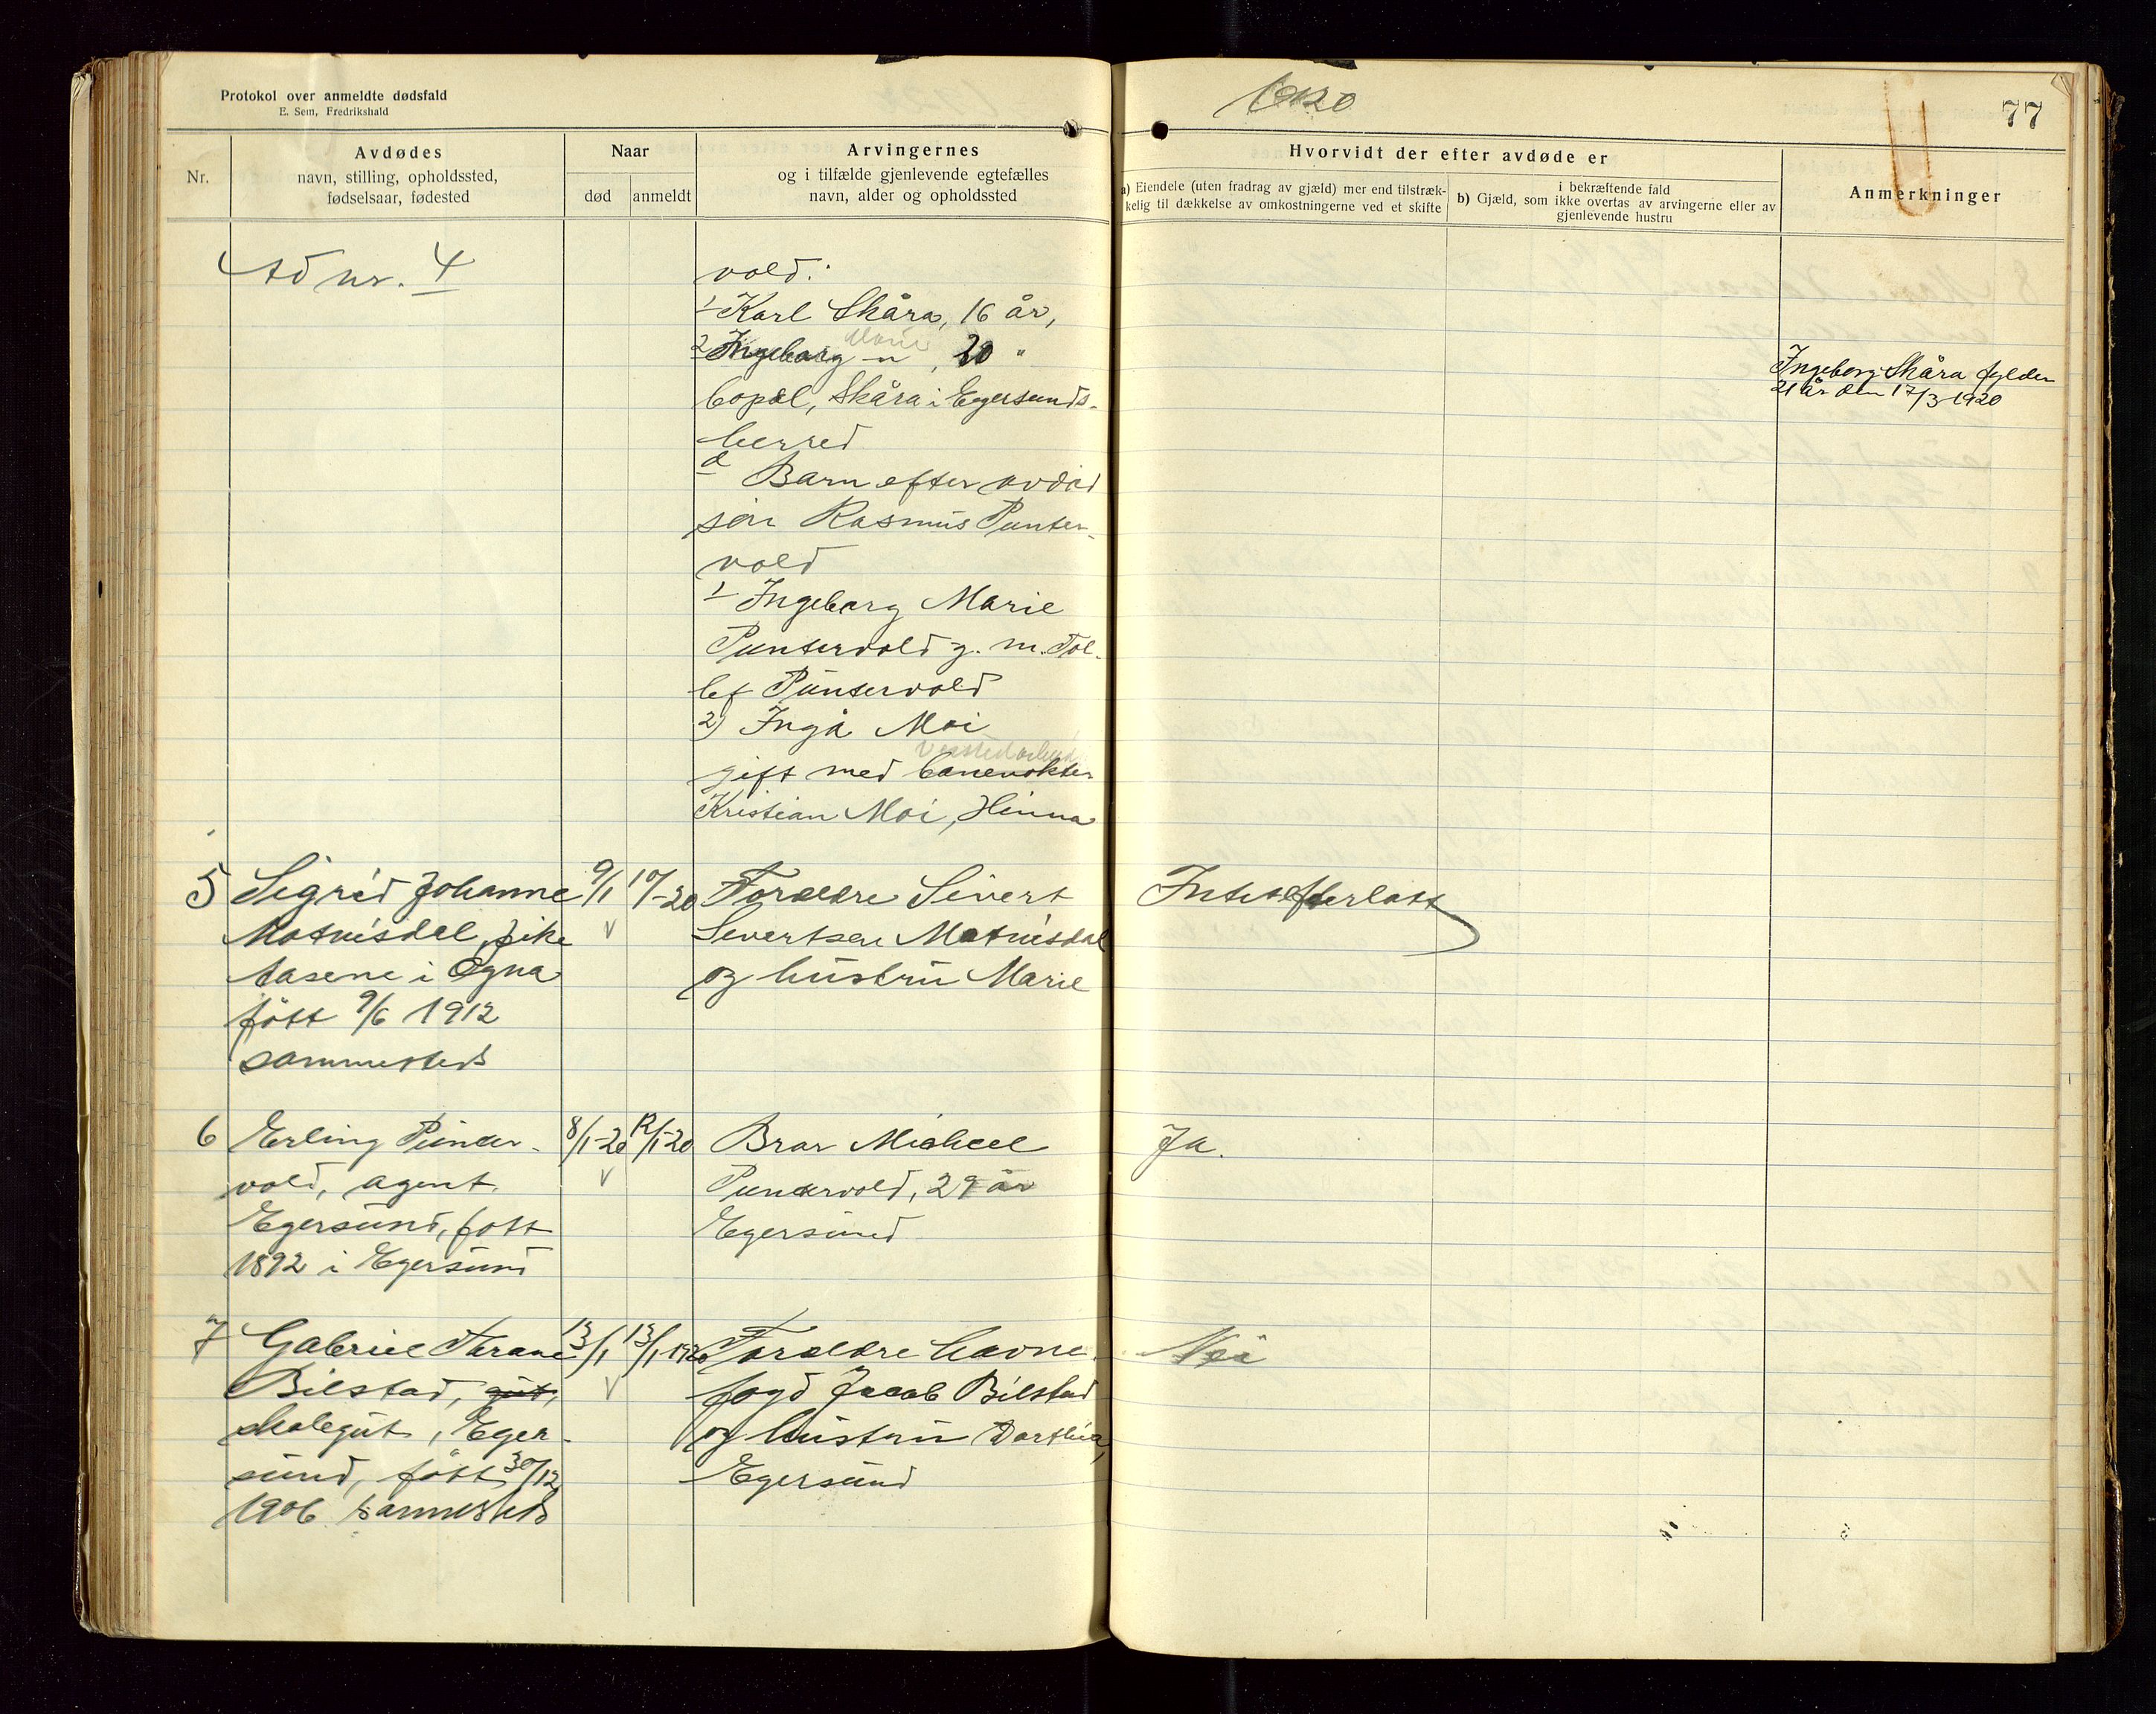 Protokol over anmeldte dødsfald
E. Sem, Fredrikshald
1920
77
Nr.
Avdødes
navn, stilling, opholdssted,
fødselsaar, fødested
Naar
død
anmeldt
Arvingernes
og i tilfælde gjenlevende egtefælles
navn, alder og opholdssted
Hvorvidt der efter avdøde er
a) Eiendele (uten fradrag av gjæld) mer end tilstræk-
kelig til dækkelse av omkostningerne ved et skifte
i bekræftende fald
b) Gjæld, som ikke overtas av arvingerne eller av
gjenlevende hustru
Anmerkninger
Ad nr. 4
vold:
1 Karl Skåra, 16 år,
Marie
2 Ingeborg —"—, 20 "
bopæl, Skåra i Egersunds-
herred
d Barn efter avdød
søn Rasmus Punter-
vold
1 Ingeborg Marie
Puntervold g. m. Tol-
lef Puntervold
2) Inga Moi
gift med banevokter
Kristian Moi, Hinna
Ingeborg Skåra fylder
21 år den 17/3 1920
5 Sigrid Johanne 9/1 10/1-20 Forældre Sivert Intet efterlatt
Motnisdal, pike v Sivertsen Motnisdal
Aasene i Ogna og hustru Marie
født 9/6 1912
sammesteds
6 Erling Punter- 8/1-20 12/1-20 Bror Michael Ja.
vold, agent, v Puntervold, 29 år
Egersund, født Egersund
1892 i Egersund
7 Gabriel Thrane 13/1 13/1-1920 Forældre havne- Nei
Bilstad, gut, v fogd Jacob Bilstad
skolegut, Eger- og hustru Dorthea,
sund, født 30/12 Egersund
1906 sammesteds